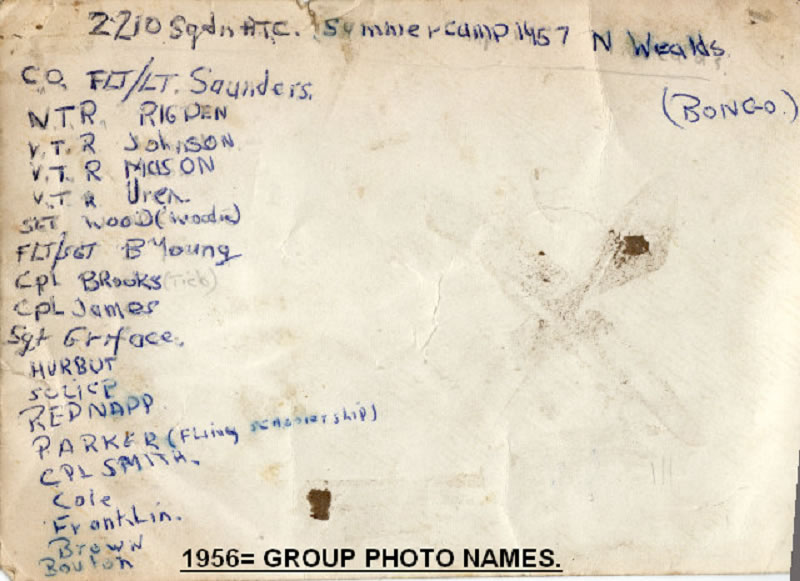 2210 Sqdn ATC. Summer camp 1957 N Wealds
(BONGO.)
C.O. FLT/LT. Saunders.
V.T.R. RIGDEN
V.T.R Johnson
V.T.R MASON
V.T R Uren.
SGT WOOD (Woodie)
FLT/SGT B Young
Cpl BRooks (Tich)
Cpl James
Sgt
HURBUT
REDNAPP
PARKER (FLiing scholership)
CPL SMITH.
Cole
Franklin.
Brown
Bouton
1956= GROUP PHOTO NAMES.